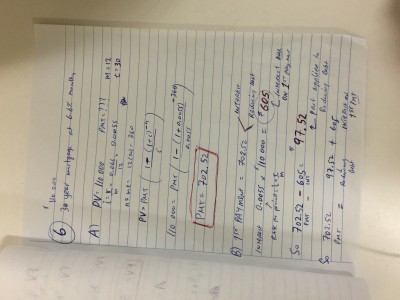 6
110,000
30 year mortgage at 6.6% monthly
A) PV = 110 000 PMT = ??? m = 12
i = r/m = 0.066/12 = 0.0055 t = 30
n = m·t = 12(30) = 360
PV = PMT ( 1 - (1+i)^-n / i )
110 000 = PMT ( 1 - (1+0.0055)^-360 / 0.0055 )
PMT = 702.52
B) 1st PAYMENT = 702.52 < INTEREST
Reducing Debt
Interest 0.0055 * 110 000 = $605
Rate per period i = r/m
Interest Due
on 1st payment
So 702.52 - 605 = $97.52
PMT - INT
Part applied to
Reducing Debt
So 702.52 = 97.52 + 605
PMT = Reducing Debt Interest on
1st PMT